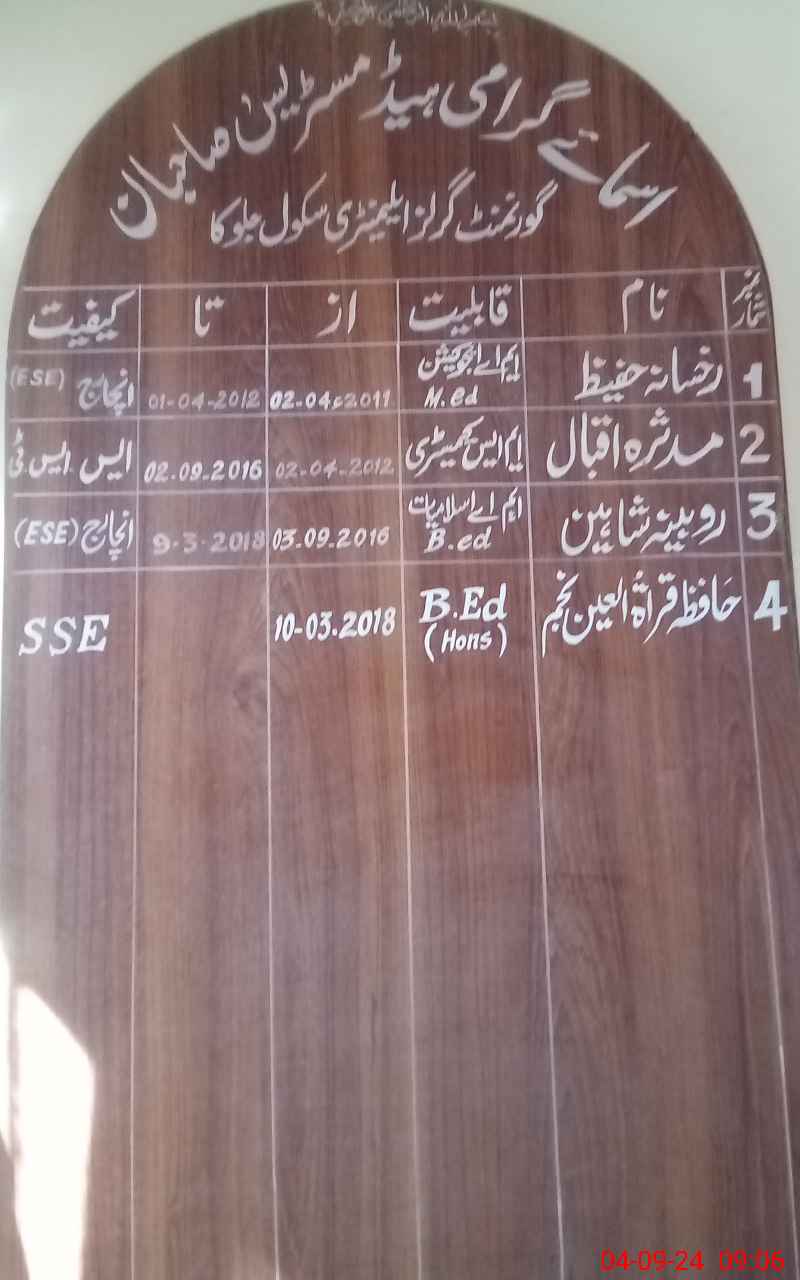 بسم اللہ الرحمن الرحیم
اسمائے گرامی ہیڈ مسٹریس صاحبان
گورنمنٹ گرلز ایلیمنٹری سکول جلوکا
نمبر شمار نام قابلیت از تا کیفیت
1 رخسانہ حفیظ ایم اے ایجوکیشن M.ed 02-04-2011 01-04-2012 انچارج (ESE)
2 مدثرہ اقبال ایم ایس کیمسٹری 02-04-2012 02.09.2016 ایس ایس ٹی
3 روبینہ شاہین ایم اے اسلامیات B.ed 03.09.2016 9-3-2018 انچارج (ESE)
4 حافظہ قراۃ العین نجم B.Ed (Hons) 10-03.2018 SSE
04-09-24 09:06